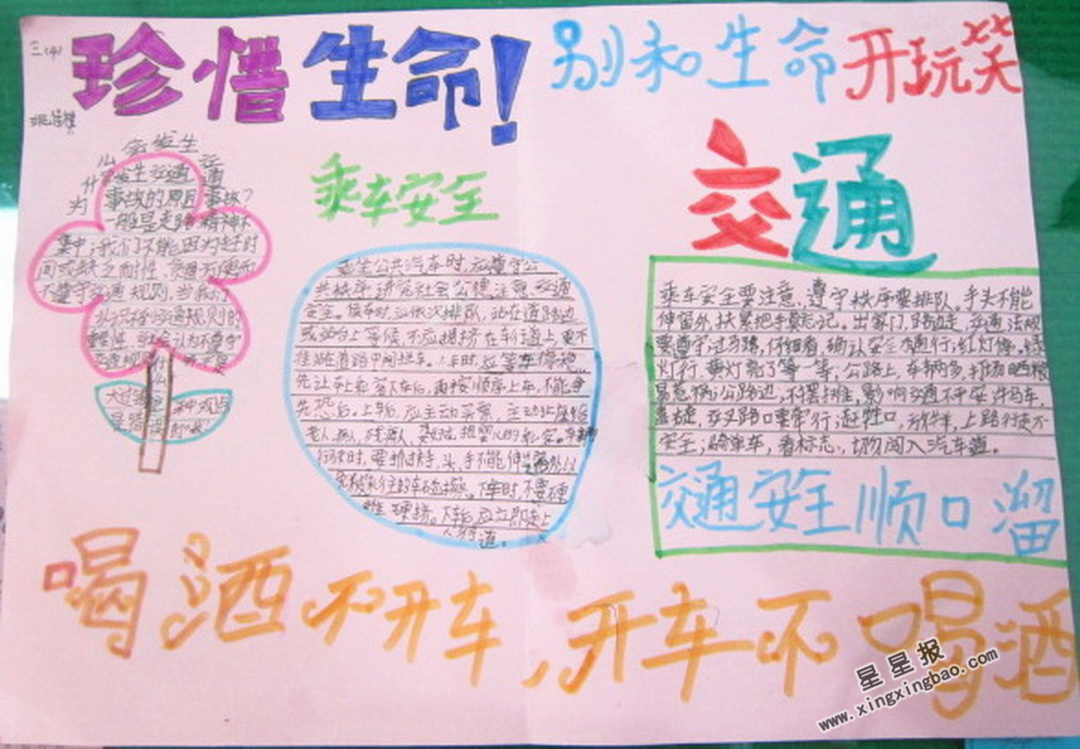 三(4)
珍惜生命!
别和生命开玩笑
为什么会发生交通事故?
发生交通
事故的原因
一般是走路精神不
集中;我们不能因为赶时
间或缺乏耐性、
不遵守交通规则,
交通规则的
乘车安全
乘坐公共汽车时,应遵守公
共秩序,讲究社会公德,注意交通
安全。候车时,应依次排队,站在道路边
或站台上等候,不应拥挤在车行道上,更不
准站在道路中间拦车。上车时,应等车停稳,
先让车上乘客下车后,再按顺序上车,不能争
先恐后。上车后,应主动买票,主动让座给
老人、病人、残疾人、
行驶时,要抓扶手,头、手不能伸出窗外,以
免被来往的车碰撞。下车时,不要硬
推硬挤。下车后,应立即走上
人行道。
交通
乘车安全要注意,遵守秩序要排队。手头不能
伸窗外,扶紧把手莫忘记。出家门,路边走,交通法规
要遵守。过马路,仔细看,确认安全再通行;红灯停,绿
灯行,黄灯亮了等一等;公路上,车辆多,
公路边,不摆摊,影响交通不平安。
上路行走不
安全;骑单车,看标志,切勿闯入汽车道。
交通安全顺口溜
喝酒不开车,开车不喝酒
星星报
www.xingxingbao.com